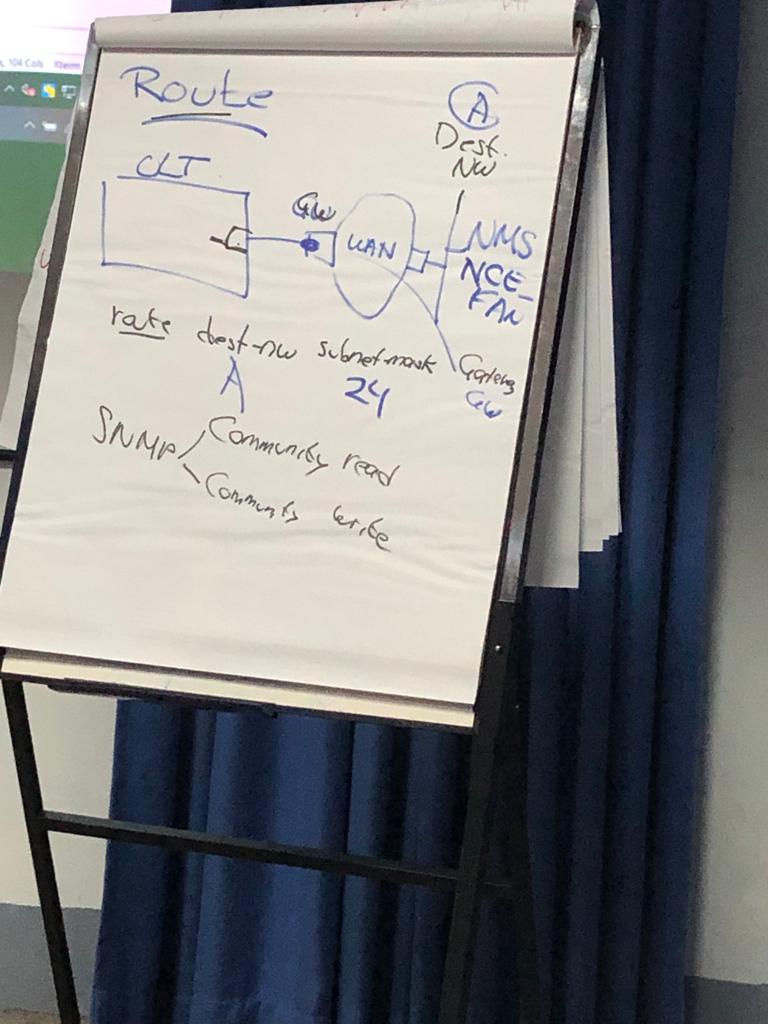 , 104 Cols Xterm
Route
A
Dest.
NW
OLT
GW
WAN
NMS
NCE-
FAN
route dest-nw subnet-mask Gateway
A 24 GW
SNMP
Community read
Community write